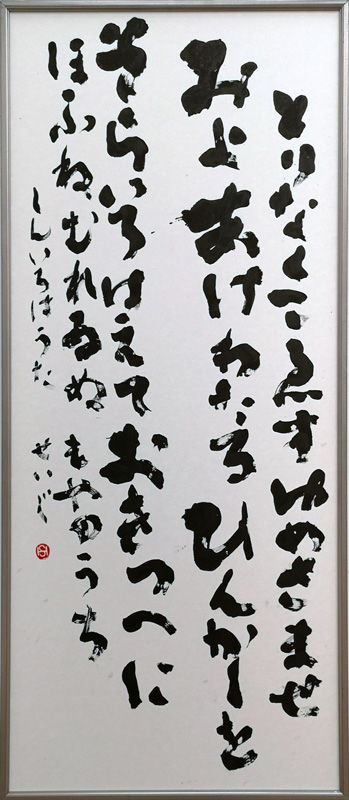 とりなくこゑす ゆめさませ
みよあけわたる ひんかしを
そらいろはえて おきつへに
ほふねむれゐぬ もやのうち
しんいろはうた せいじ